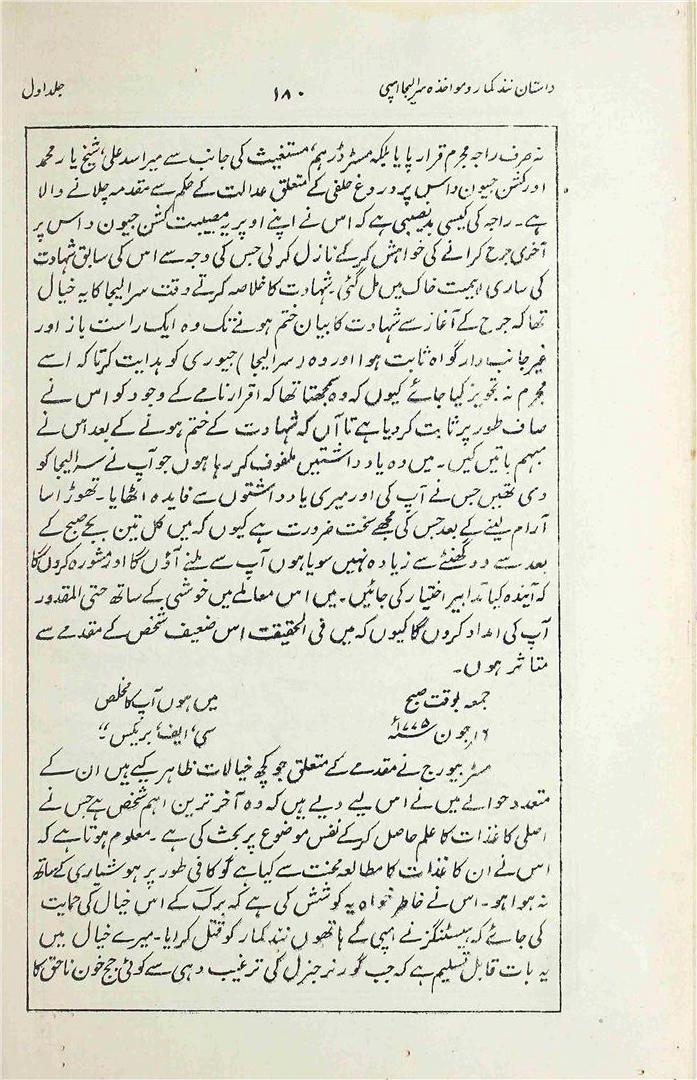 داستان نند کمار و مواخذہ سر ایلجا امپی ۱۸۰ جلد اول
نہ صرف راجہ مجرم قرار پایا بلکہ مسٹر ڈرہم، مستغیث کی جانب سے میر اسد علی، شیخ یار محمد
اور کشن جیون داس پر دروغ حلفی کے متعلق عدالت کے حکم سے مقدمہ چلانے والا
ہے۔ راجہ کی کیسی بدنصیبی ہے کہ اس نے اپنے اوپر یہ مصیبت کشن جیون داس پر
آخری جرح کرانے کی خواہش کرکے نازل کرلی جس کی وجہ سے اس کی سابق شہادت
کی ساری اہمیت خاک میں مل گئی۔ شہادت کا خلاصہ کرتے وقت سر ایلجا کا یہ خیال
تھا کہ جرح کے آغاز سے شہادت کا بیان ختم ہونے تک وہ ایک راست باز اور
غیر جانب دار گواہ ثابت ہوا اور وہ (سر ایلجا) جیوری کو ہدایت کرتا کہ اسے
مجرم نہ تجویز کیا جائے کیوں کہ وہ سمجھتا تھا کہ اقرار نامے کے وجود کو اس نے
صاف طور پر ثابت کردیا ہے تا آں کہ شہادت کے ختم ہونے کے بعد اس نے
مبہم باتیں کیں۔ میں وہ یادداشتیں ملفوف کر رہا ہوں جو آپ نے سر ایلجا کو
دی تھیں جس نے آپ کی اور میری یادداشتوں سے فایدہ اٹھایا۔ تھوڑا سا
آرام لینے کے بعد جس کی مجھے سخت ضرورت ہے کیوں کہ میں کل تین بجے صبح کے
بعد سے دو گھنٹے سے زیادہ نہیں سویا ہوں آپ سے ملنے آؤں گا اور مشورہ کروں گا
کہ آیندہ کیا تدابیر اختیار کی جائیں۔ میں اس معاملے میں خوشی کے ساتھ حتی المقدور
آپ کی امداد کروں گا کیوں کہ میں فی الحقیقت اس ضعیف شخص کے مقدمے سے
متاثر ہوں۔
جمعہ بوقت صبح میں ہوں آپ کا مخلص
۱۶؍ جون ۱۷۷۵ء سی، ایف، بریکس"
مسٹر بیورج نے مقدمے کے متعلق جو کچھ خیالات ظاہر کیے ہیں ان کے
متعدد حوالے میں نے اس لیے دیے ہیں کہ وہ آخر ترین اہم شخص ہے جس نے
اصلی کاغذات کا علم حاصل کرکے نفس موضوع پر بحث کی ہے۔ معلوم ہوتا ہے کہ
اس نے ان کاغذات کا مطالعہ محنت سے کیا ہے گو کافی طور پر ہوشیاری کے ساتھ
نہ ہوا ہو۔ اس نے خاطر خواہ یہ کوشش کی ہے کہ برک کے اس خیال کی حمایت
کی جائے کہ ہیسٹنگز نے امپی کے ہاتھوں نند کمار کو قتل کرایا۔ میرے خیال میں
یہ بات قابل تسلیم ہے کہ جب گورنر جنرل کی ترغیب دہی سے کوئی جج خون ناحق کا